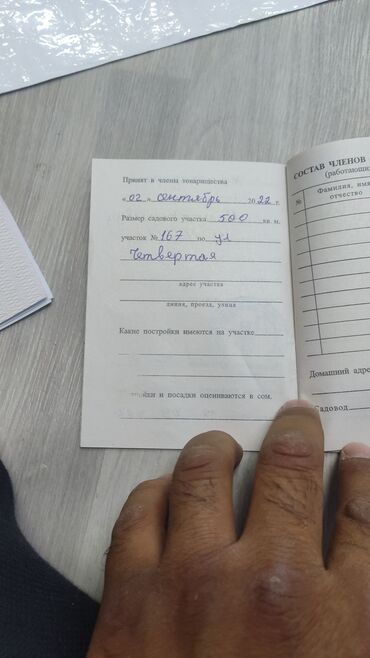 Принят в члены товарищества
« 02 » сентябрь 2022 г.
Размер садового участка 500 кв. м.
участок № 167 по ул
Четвертая
адрес участка
линия, проезд, улица
Какие постройки имеются на участке
и посадки оцениваются в сом.
СОСТАВ ЧЛЕНОВ
(работающи
№
Фамилия, имя
отчество
Домашний адре
Садовод